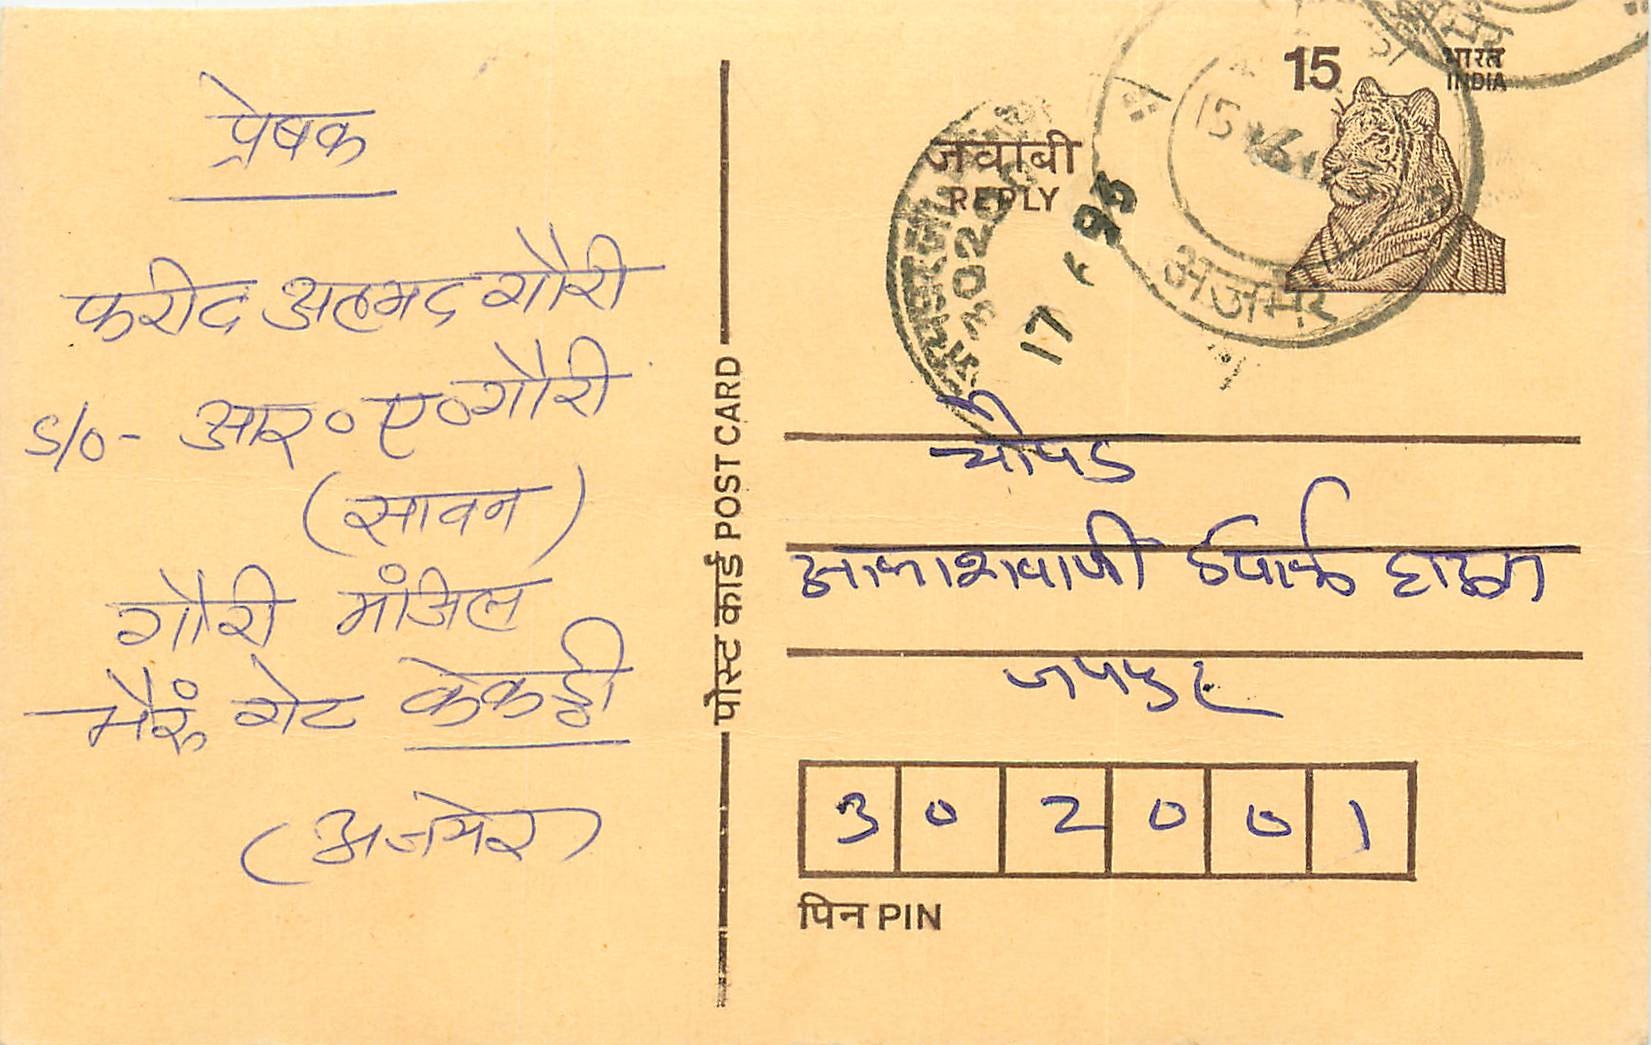 प्रेषक
फरीद अहमद गौरी
S/o- आर० ए० गौरी
(सावन)
गौरी मंजिल
भैरुं गेट केकड़ी
(अजमेर)
पोस्ट कार्ड POST CARD
15
भारत
INDIA
जवाबी
REPLY
3020
17 6 95
15
अजमेर
चौपड
आकाशवाणी
जयपुर
302001
पिन PIN